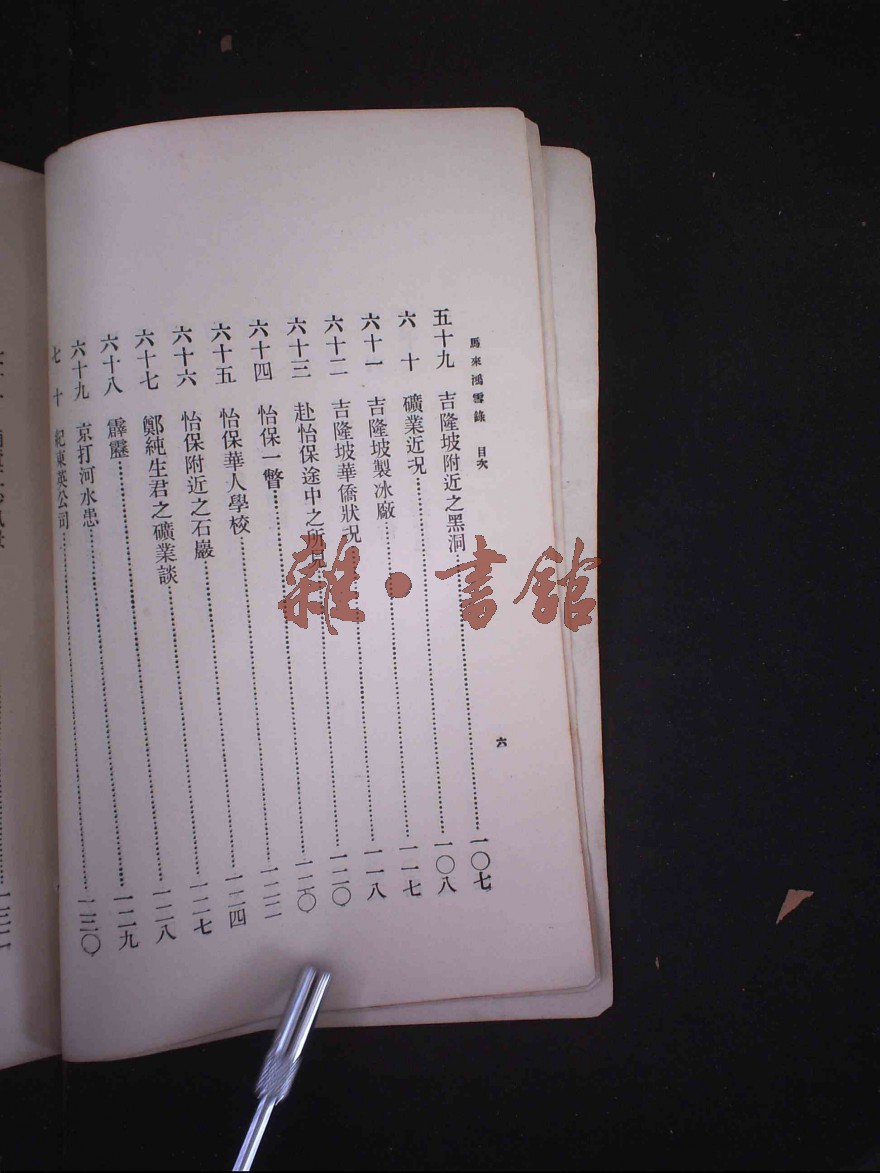 馬來鴻雪錄 目次 六
五十九 吉隆坡附近之黑洞……一〇七
六十 礦業近況……一〇八
六十一 吉隆坡製冰廠……一一七
六十二 吉隆坡華僑狀況……一一八
六十三 赴怡保途中之所見……一二〇
六十四 怡保一瞥……一二〇
六十五 怡保華人學校……一二二
六十六 怡保附近之石巖……一二四
六十七 鄭純生君之礦業談……一二七
六十八 霹靂……一二八
六十九 京打河水患……一二九
七十 紀東英公司……一三〇
雜·書館